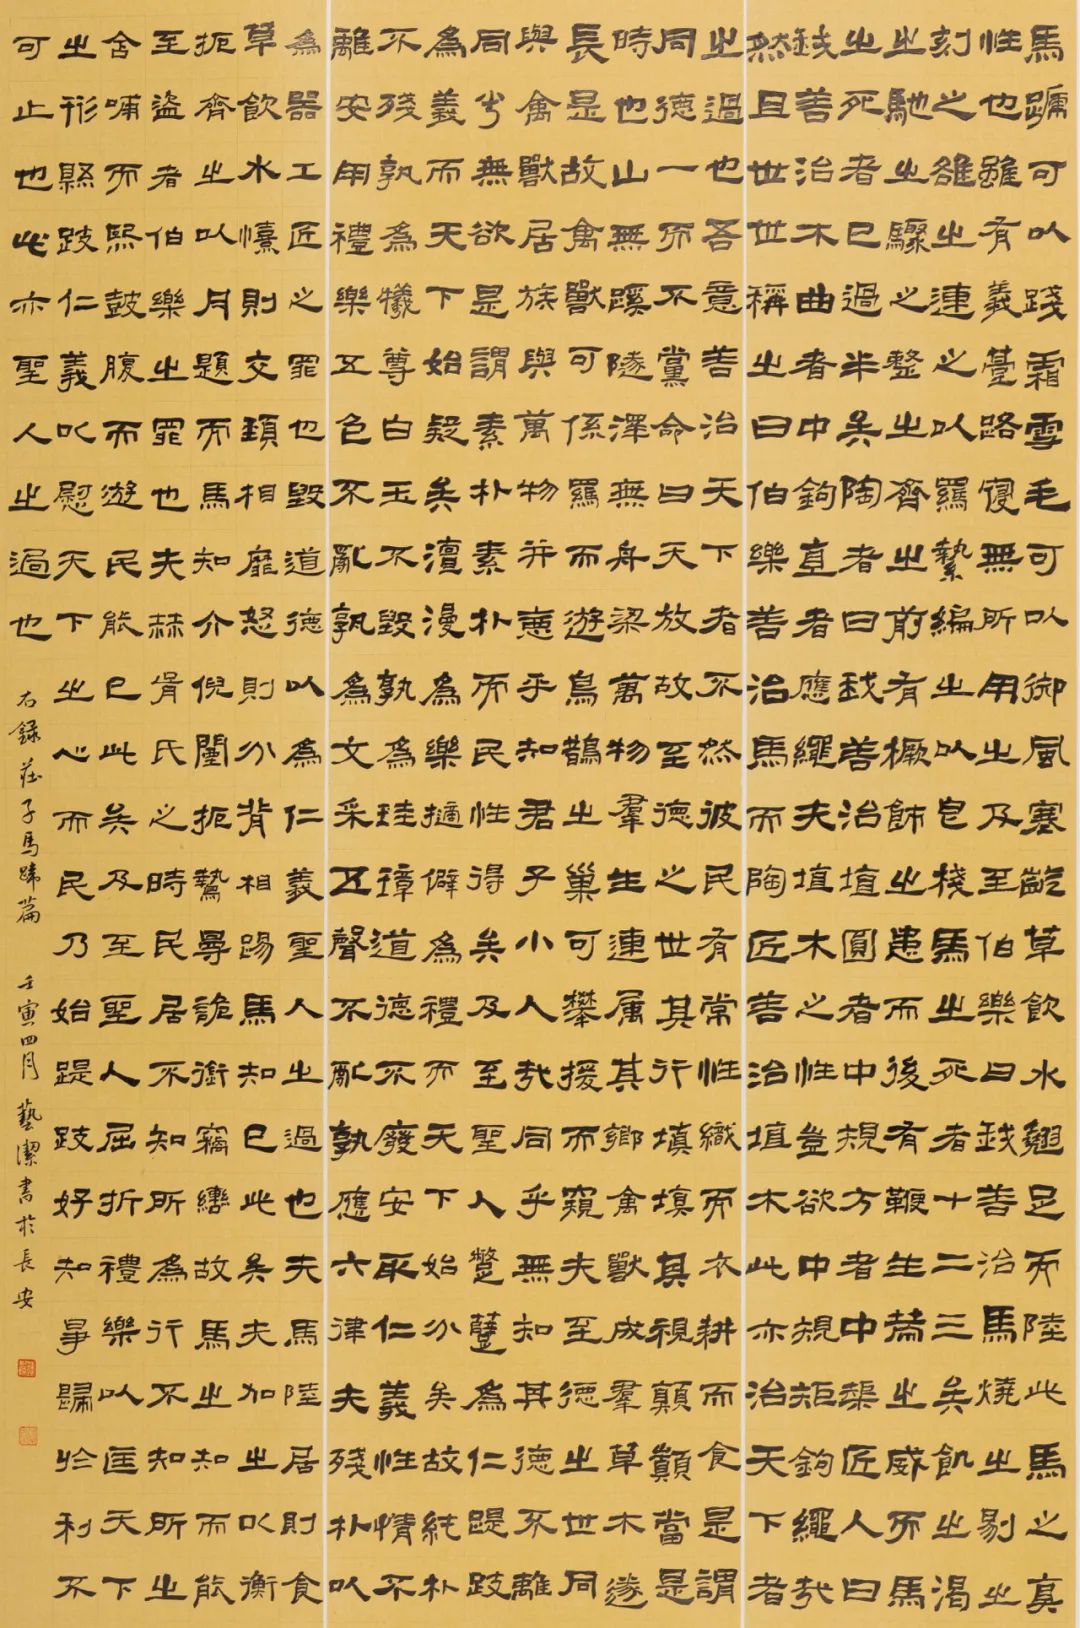 馬蹏可以踐霜雪毛可以御風寒齕草飲水翹足而陸此馬之真
性也雖有義臺路寢無所用之及至伯樂曰我善治馬燒之剔之
刻之雒之連之以羈縶編之以皂棧馬之死者十二三矣飢之渴
之馳之驟之整之齊之前有橛飾之患而後有鞭生筴之威而馬
之死者已過半矣陶者曰我善治埴圓者中規方者中榘匠人曰
我善治木曲者中鉤直者應繩夫埴木之性豈欲中規矩鉤繩哉
然且世世稱之曰伯樂善治馬而陶匠善治埴木此亦治天下者
之過也吾意善治天下者不然彼民有常性織而衣耕而食是謂
同德一而不黨命曰天放故至德之世其行填填其視顛顛當是
時也山無蹊隧澤無舟梁萬物羣生連属其鄉禽獸成羣草木遂
長是故禽獸可係羈而遊鳥鵲之巢可攀援而窺夫至德之世同
與禽獸居族與萬物并惡乎知君子小人哉同乎無知其德不離
同乎無欲是謂素朴素朴而民性得矣及至聖人蹩躠為仁踶跂
為義而天下始疑矣澶漫為樂摘僻為禮而天下始分矣故純朴
不殘孰為犧尊白玉不毀孰為珪璋道德不廢安取仁義性情不
離安用禮樂五色不亂孰為文采五聲不亂孰應六律夫殘朴以
為器工匠之罪也毀道德以為仁義聖人之過也夫馬陸居則食
草飲水憙則交頚相靡怒則分背相踢馬知已此矣夫加之以衡
扼齊之以月題而馬知介倪闉扼鷙曼詭銜竊轡故馬之知而能
至盜者伯樂之罪也夫赫胥氏之時民居不知所為行不知所之
含哺而熙鼓腹而遊民能已此矣及至聖人屈折禮樂以匡天下
之形縣跂仁義以慰天下之心而民乃始踶跂好知爭歸於利不
可止也此亦聖人之過也 右錄莊子馬蹄篇 壬寅四月 藝潔書於長安